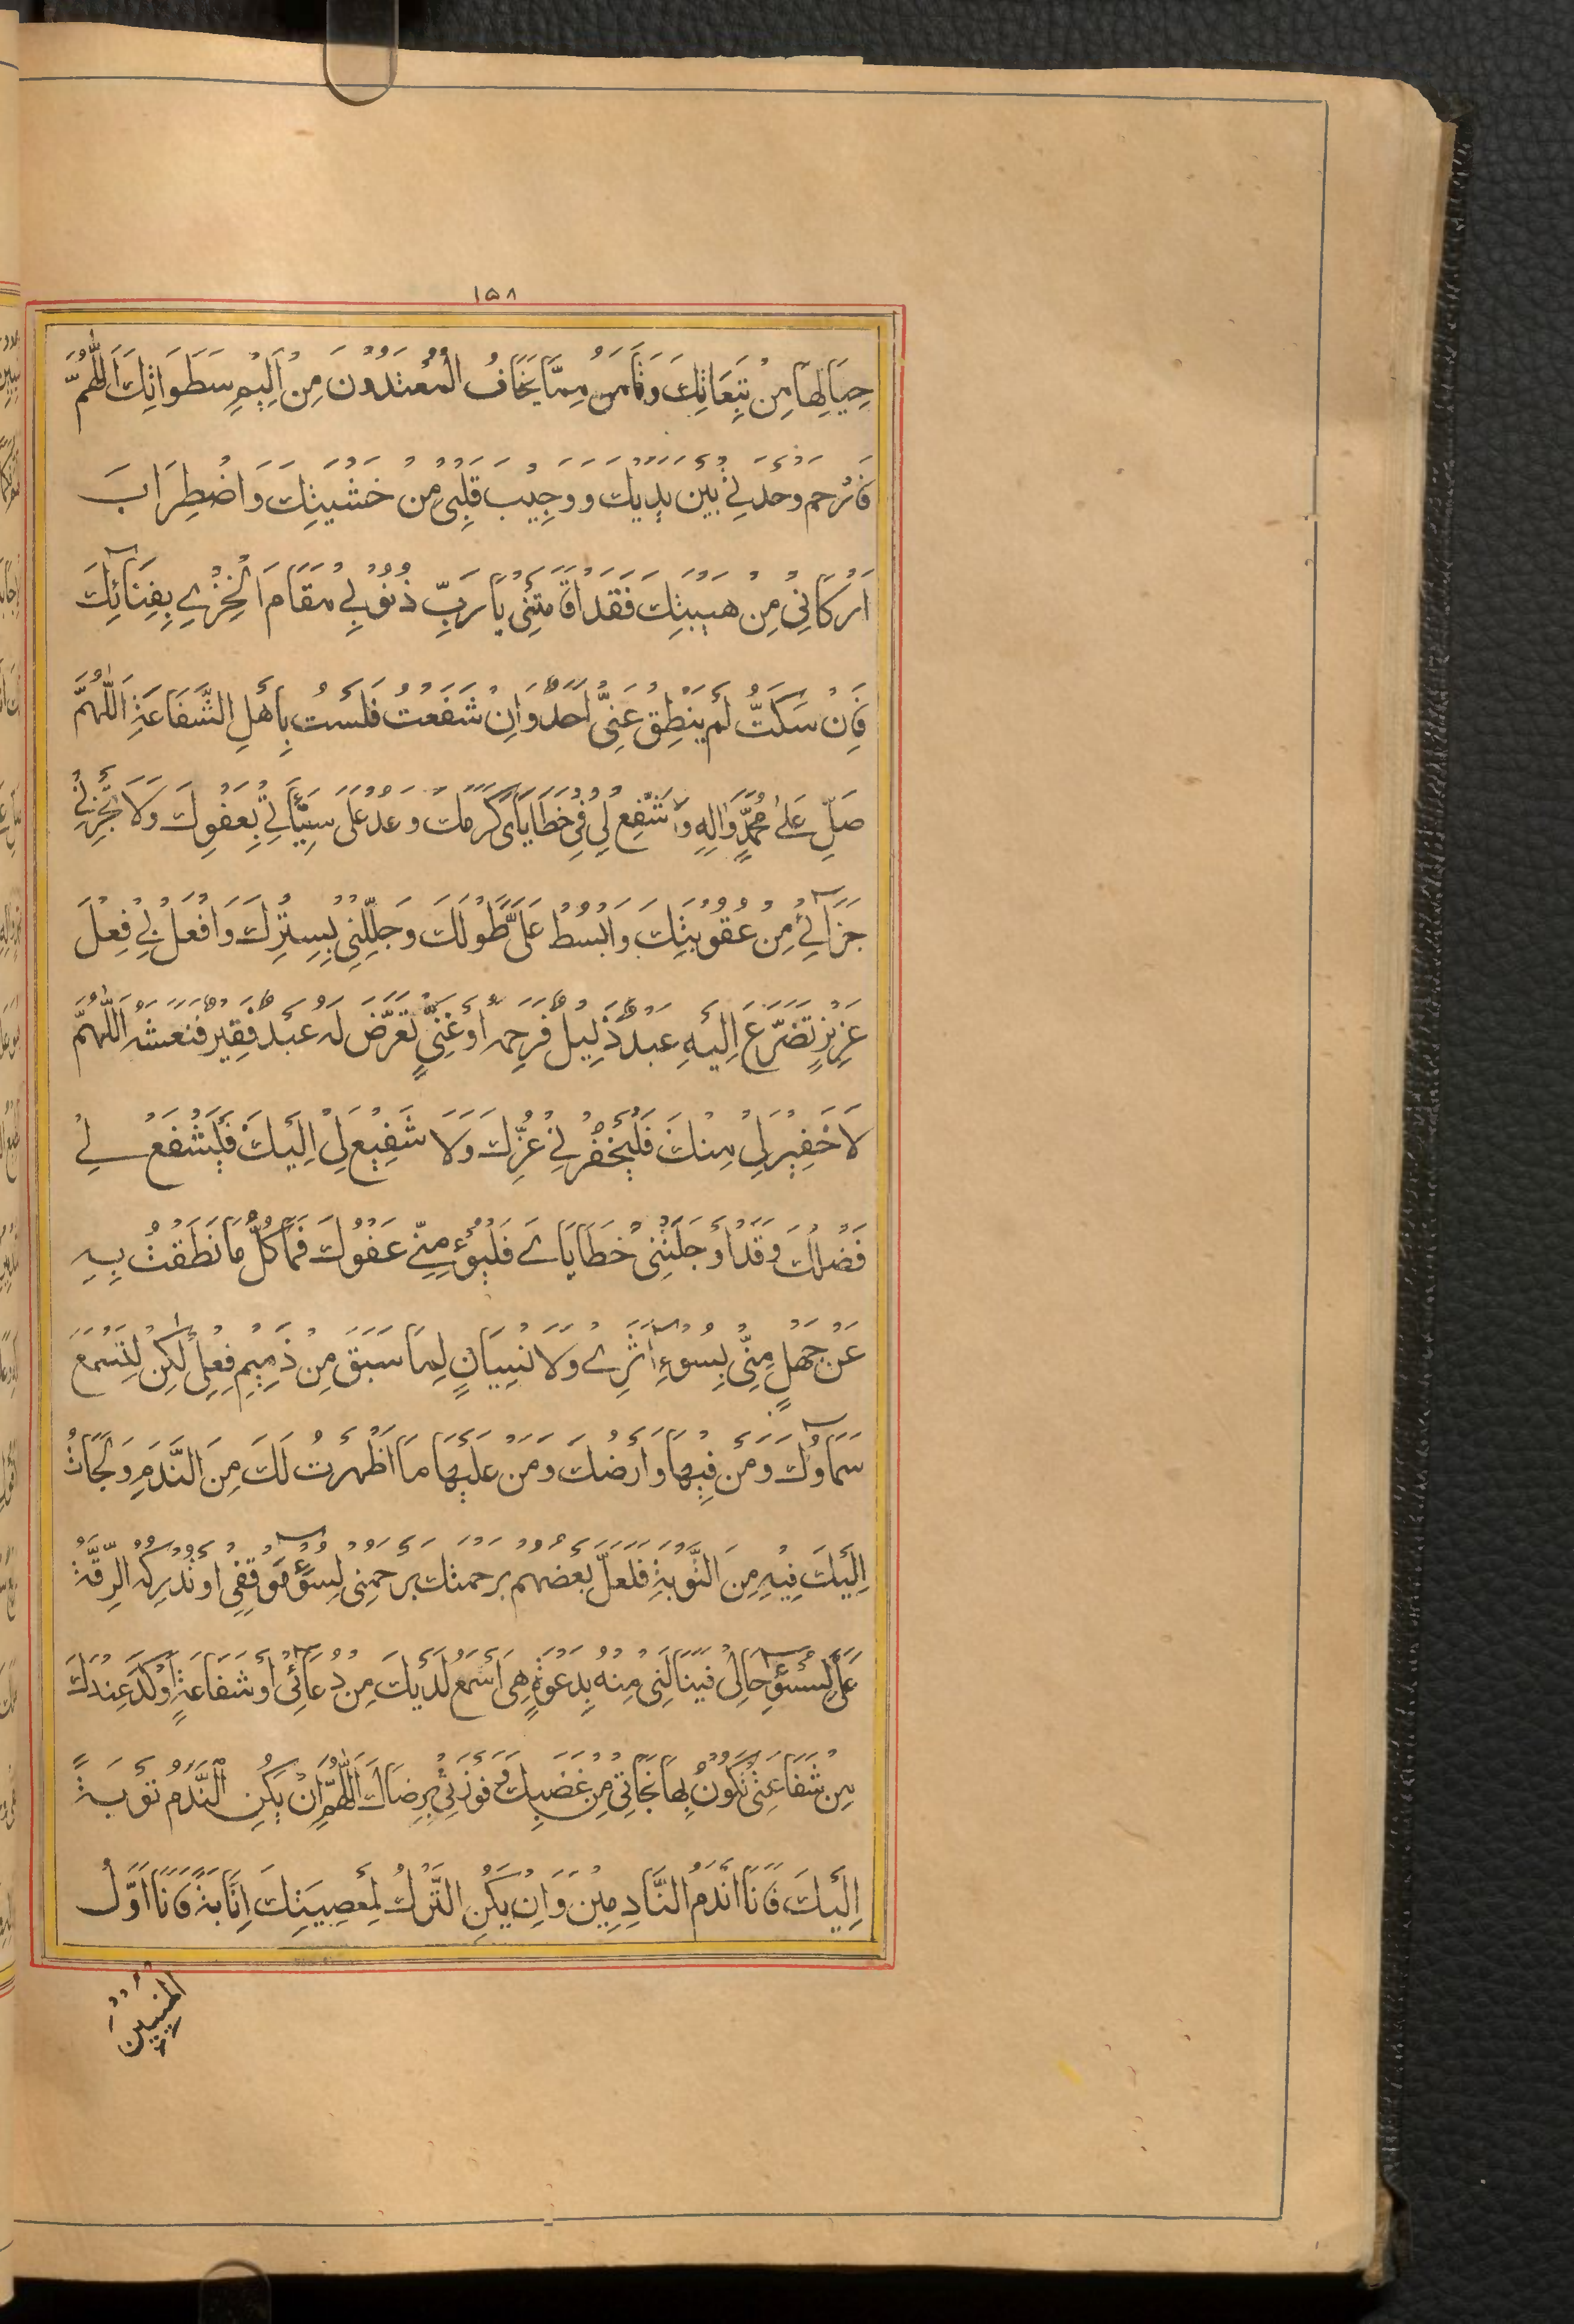 ١٥٨
حِيَالِهَا مِنْ تَبِعَاتِكَ وَتَأْمَنُ مِمَّا يَخَافُ الْمُعْتَدُونَ مِنْ اَلِيْمِ سَطَوَاتِكَ اَللّٰهُمَّ
فَارْحَمْ وَحْدَتِيْ بَيْنَ يَدَيْكَ وَ وَجِيْبَ قَلْبِىْ مِنْ خَشْيَتِكَ وَاضْطِرَابَ
اَرْكَانِىْ مِنْ هَيْبَتِكَ فَقَدْ اَقَامَتْنِىْ يَا رَبِّ ذُنُوْبِىْ مَقَامَ الْخِزْيِ بِفِنَآئِكَ
فَاِنْ سَكَتُّ لَمْ يَنْطِقْ عَنِّىْ اَحَدٌ وَاِنْ شَفَعْتُ فَلَسْتُ بِاَهْلِ الشَّفَاعَةِ اَللّٰهُمَّ
صَلِّ عَلٰى مُحَمَّدٍ وَاٰلِهِ وَاشْفَعْ لِىْ فِىْ خَطَايَاىَ كَرَمَكَ وَعُدْ عَلٰى سَيِّئَاتِىْ بِعَفْوِكَ وَلَا تَجْزِنِىْ
جَزَآئِىْ مِنْ عُقُوْبَتِكَ وَابْسُطْ عَلَىَّ طَوْلَكَ وَجَلِّلْنِىْ بِسِتْرِكَ وَافْعَلْ بِىْ فِعْلَ
عَزِيْزٍ تَضَرَّعَ اِلَيْهِ عَبْدٌ ذَلِيْلٌ فَرَحِمَهُ اَوْ غَنِىٍّ تَعَرَّضَ لَهُ عَبْدٌ فَقِيْرٌ فَنَعَشَهُ اَللّٰهُمَّ
لَا خَفِيْرَ لِىْ مِنْكَ فَلْيَخْفُرْنِىْ عِزُّكَ وَلَا شَفِيْعَ لِىْ اِلَيْكَ فَلْيَشْفَعْ لِىْ
فَضْلُكَ وَقَدْ اَوْجَلَتْنِىْ خَطَايَاىَ فَلْيُؤْمِنِّىْ عَفْوُكَ فَمَا كُلُّ مَا نَطَقْتُ بِهِ
عَنْ جَهْلٍ مِنِّىْ بِسُوْءِ اَثَرِىْ وَلَا نِسْيَانٍ لِمَا سَبَقَ مِنْ ذَمِيْمِ فِعْلِىْ لٰكِنْ لِتَسْمَعَ
سَمَآوُكَ وَمَنْ فِيْهَا وَاَرْضُكَ وَمَنْ عَلَيْهَا مَا اَظْهَرْتُ لَكَ مِنَ النَّدَمِ وَلَجَاْتُ
اِلَيْكَ فِيْهِ مِنَ التَّوْبَةِ فَلَعَلَّ بَعْضَهُمْ بِرَحْمَتِكَ يَرْحَمُنِىْ لِسُوْٓءِ مَوْقِفِىْ اَوْ تُدْرِكُهُ الرِّقَّةُ
عَلَىَّ لِسُوْٓءِ حَالِىْ فَيَنَالَنِىْ مِنْهُ بِدَعْوَةٍ هِىَ اَسْمَعُ لَدَيْكَ مِنْ دُعَآئِىْ اَوْ شَفَاعَةٍ اَوْكَدُ عِنْدَكَ
مِنْ شَفَاعَتِىْ تَكُوْنُ بِهَا نَجَاتِىْ مِنْ غَضَبِكَ وَفَوْزَتِىْ بِرِضَاكَ اَللّٰهُمَّ اِنْ يَكُنِ النَّدَمُ تَوْبَةً
اِلَيْكَ فَاَنَا اَنْدَمُ النَّادِمِيْنَ وَاِنْ يَكُنِ التَّرْكُ لِمَعْصِيَتِكَ اِنَابَةً فَاَنَا اَوَّلُ
الْمُنِيْبِيْنَ